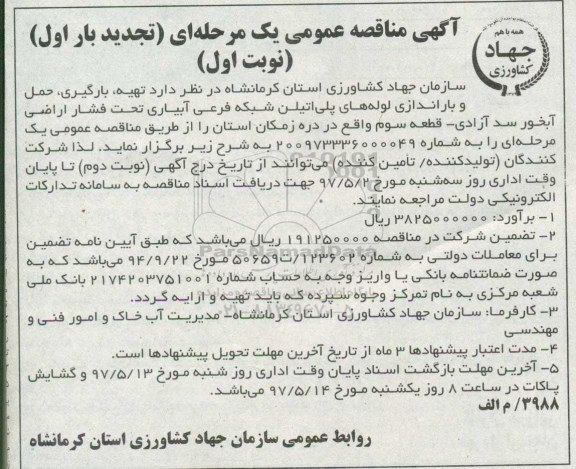 همه با هم
جهاد
کشاورزی
آگهی مناقصه عمومی یک مرحله‌ای (تجدید بار اول)
(نوبت اول)
سازمان جهاد کشاورزی استان کرمانشاه در نظر دارد تهیه، بارگیری، حمل
و باراندازی لوله‌های پلی‌اتیلن شبکه فرعی آبیاری تحت فشار اراضی
آبخور سد آزادی- قطعه سوم واقع در دره زمکان استان را از طریق مناقصه عمومی یک
مرحله‌ای را به شماره ۲۰۰۹۷۳۳۳۶۰۰۰۰۴۹ به شرح زیر برگزار نماید. لذا شرکت
کنندگان (تولیدکننده/ تأمین کننده) می‌توانند از تاریخ درج آگهی (نوبت دوم) تا پایان
وقت اداری روز سه‌شنبه مورخ ۹۷/۵/۲ جهت دریافت اسناد مناقصه به سامانه تدارکات
الکترونیکی دولت مراجعه نمایند.
۱- برآورد: ۳۸۲۵۰۰۰۰۰۰۰ ریال
۲- تضمین شرکت در مناقصه ۱۹۱۲۵۰۰۰۰ ریال می‌باشد که طبق آیین نامه تضمین
برای معاملات دولتی به شماره ۱۲۳۴۰۲/ت۵۰۶۵۹ مورخ ۹۴/۹/۲۲ می‌باشد که به
صورت ضمانتنامه بانکی یا واریز وجه به حساب شماره ۲۱۷۴۲۰۳۷۵۱۰۰۱ بانک ملی
شعبه مرکزی به نام تمرکز وجوه سپرده که باید تهیه و ارایه گردد.
۳- کارفرما: سازمان جهاد کشاورزی استان کرمانشاه - مدیریت آب خاک و امور فنی و
مهندسی
۴- مدت اعتبار پیشنهادها ۳ ماه از تاریخ آخرین مهلت تحویل پیشنهادها است.
۵- آخرین مهلت بازگشت اسناد پایان وقت اداری روز شنبه مورخ ۹۷/۵/۱۳ و گشایش
پاکات در ساعت ۸ روز یکشنبه مورخ ۹۷/۵/۱۴ می‌باشد.
۳۹۸۸/ م الف
روابط عمومی سازمان جهاد کشاورزی استان کرمانشاه
ParsNamadData